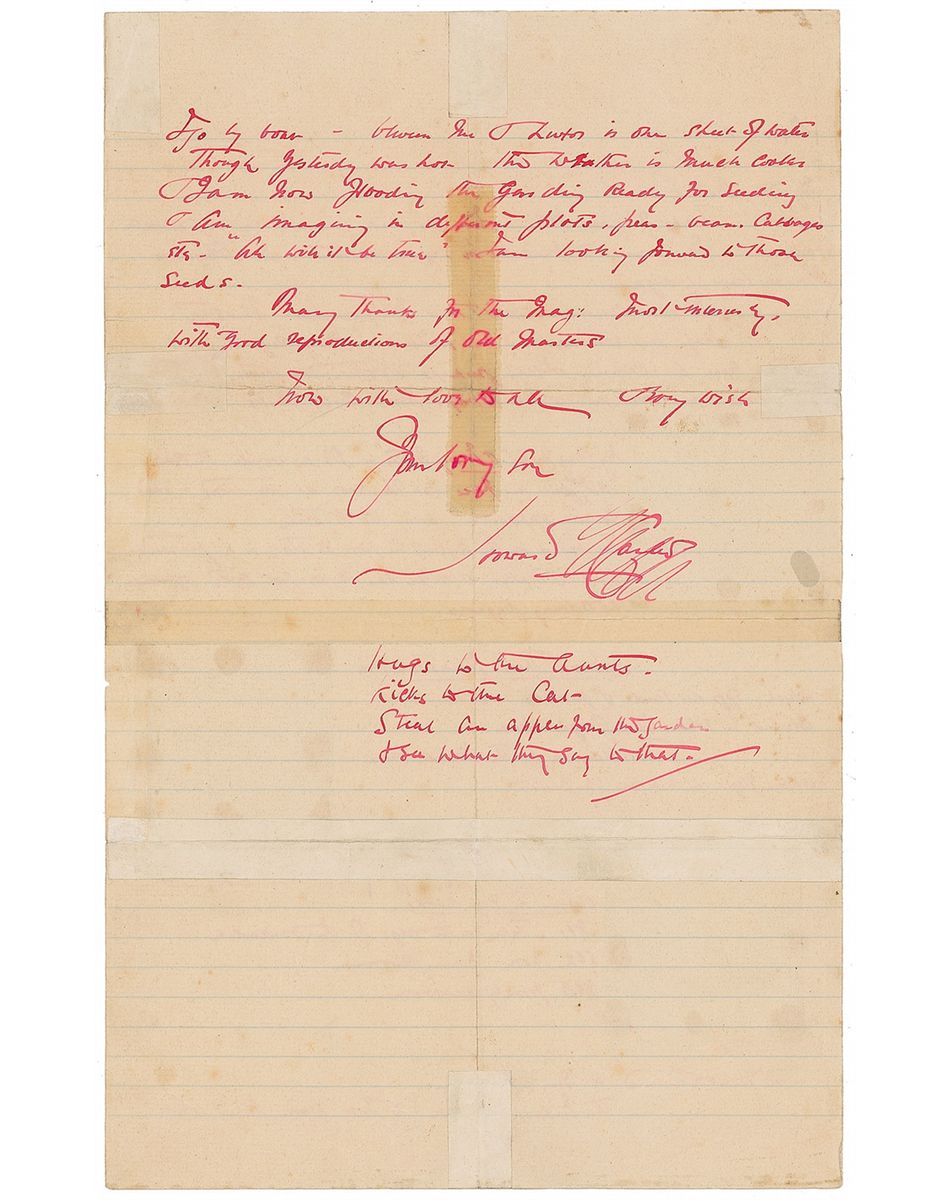 to go by boat - between me & Luxor is one sheet of water
Though Yesterday was hot the weather is much cooler
I am now flooding the Garding Ready for Seeding
I am imagining in different plots, peas - beans Cabbages
etc - "Ah will it be true" I am looking forward to those
Seeds.
Many thanks for the Mag: Most interesting,
with good reproductions of Old Masters
Now with love to all & every wish
Your loving Son
Howard Carter
Hugs to the Aunts.
Kicks to the Cat -
Steal an apple from the Garden
& see what they say to that -